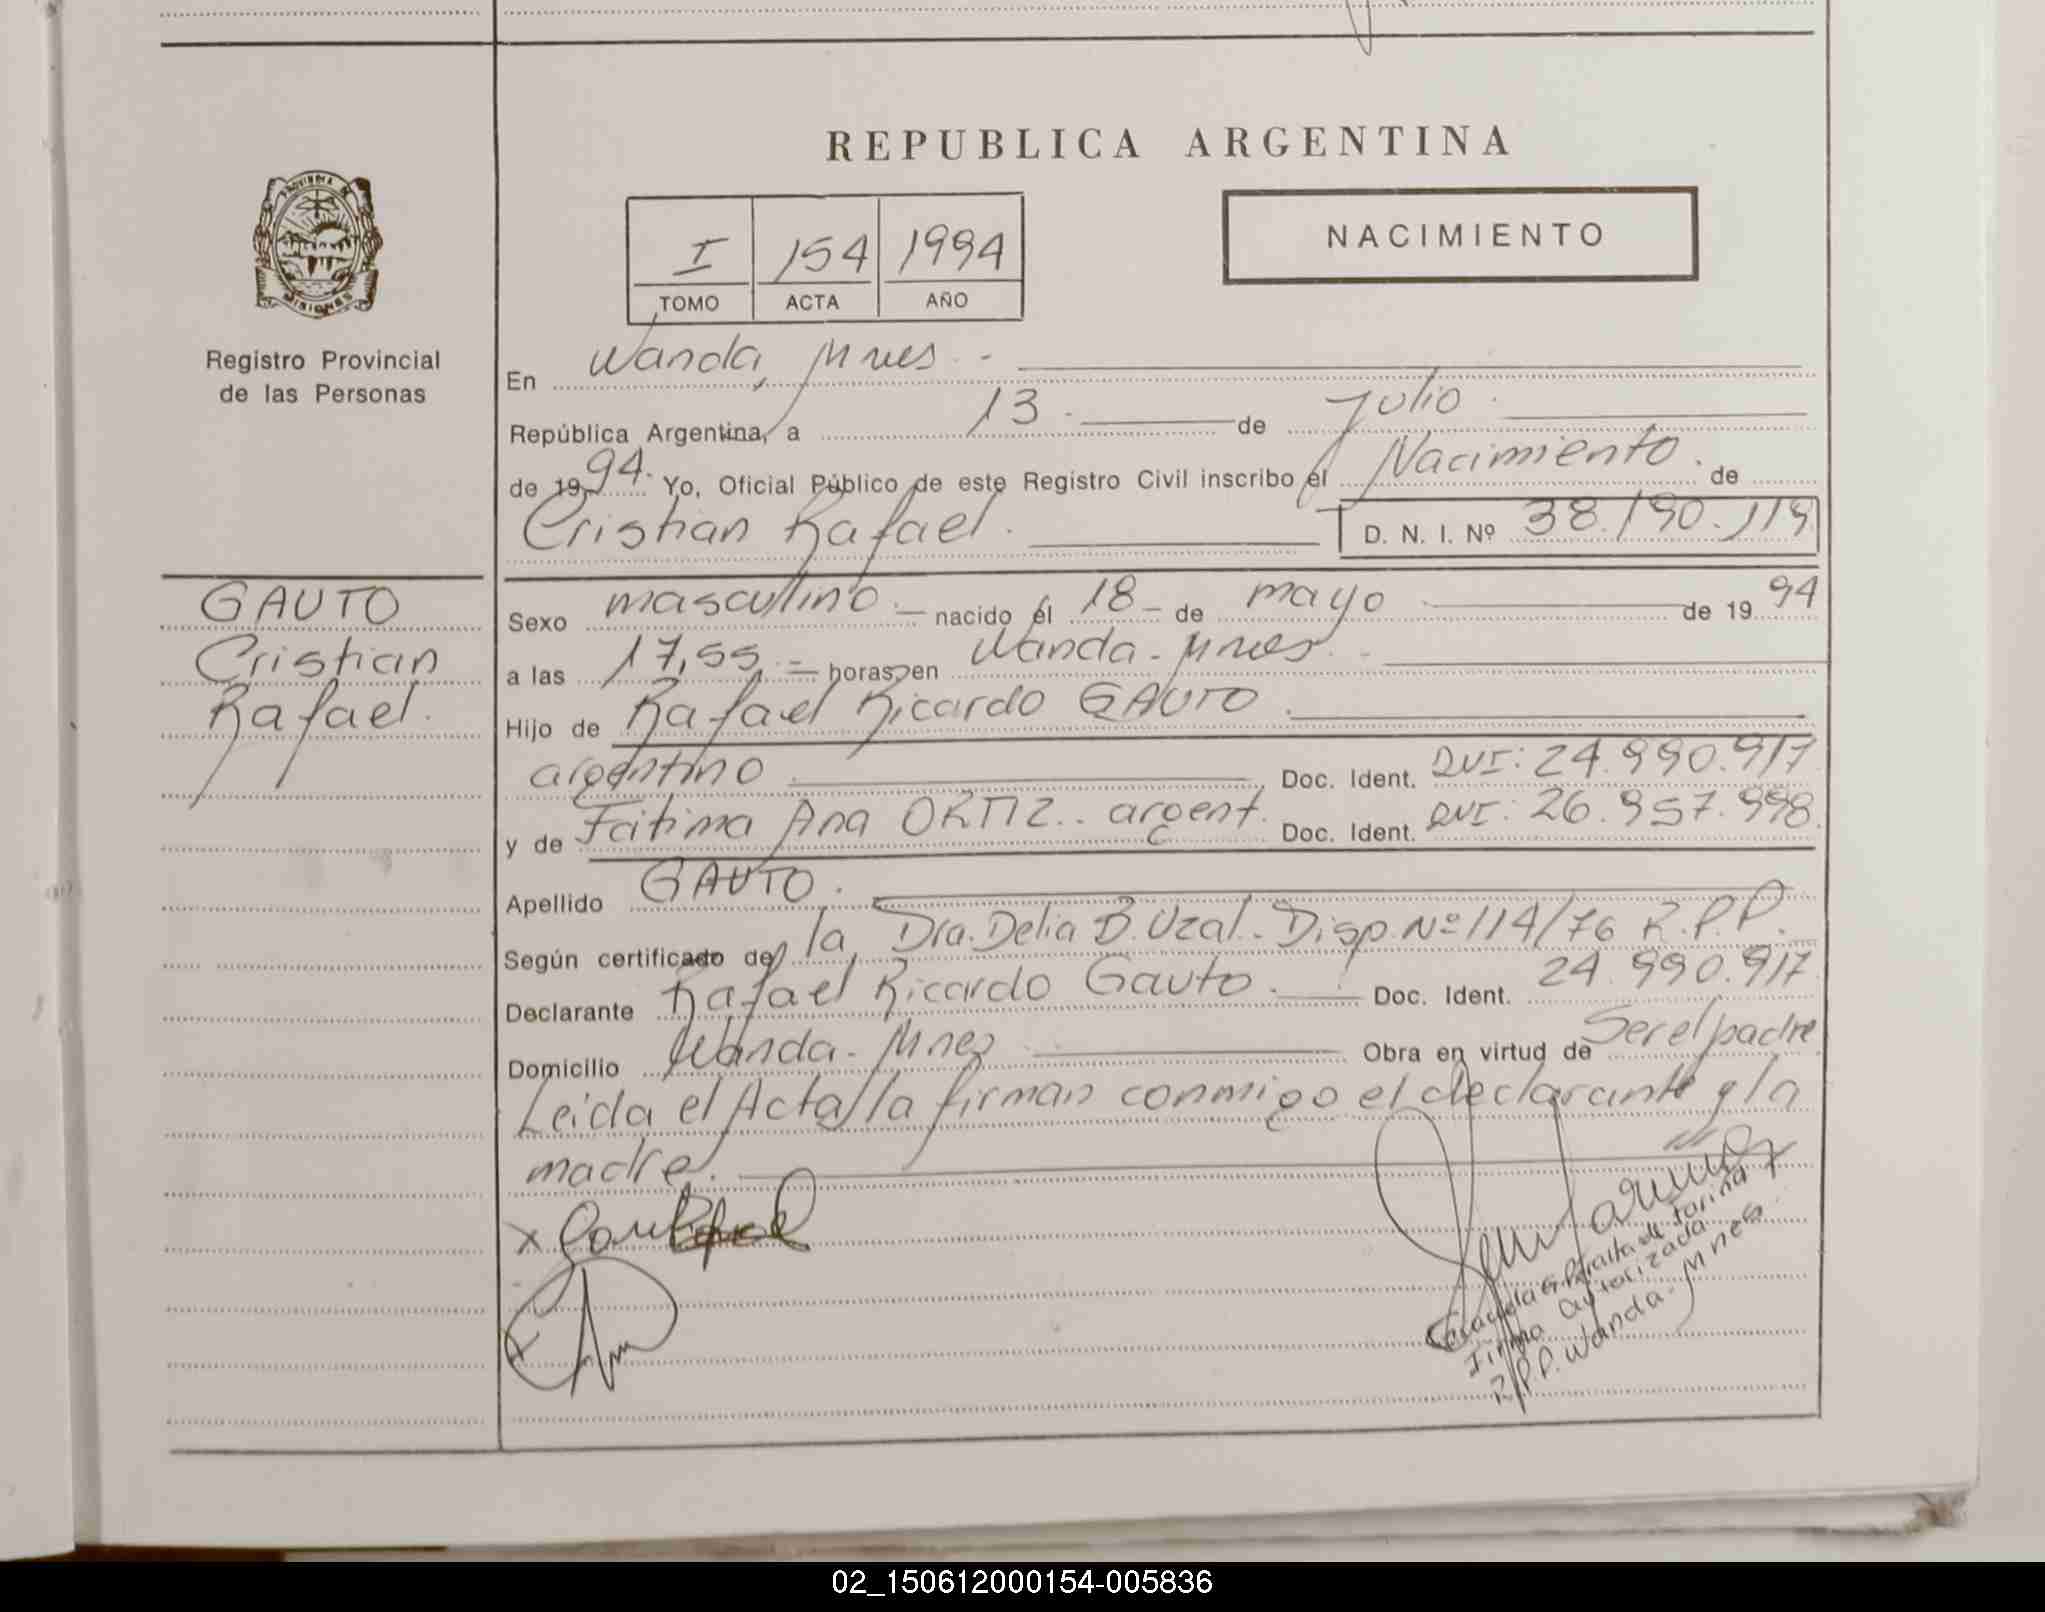 REPUBLICA ARGENTINA
PROVINCIA DE
MISIONES
Registro Provincial
de las Personas
I 154 1994
TOMO ACTA AÑO
NACIMIENTO
En Wanda, Mnes.-
República Argentina, a 13. de Julio.
de 1994. Yo, Oficial Público de este Registro Civil inscribo el Nacimiento. de
Cristian Rafael. D. N. I. Nº 38.190.119
GAUTO
Cristian
Rafael.
Sexo masculino.- nacido el 18- de mayo de 1994
a las 17,55.- horas en Wanda-Mnes.
Hijo de Rafael Ricardo GAUTO.
argentino Doc. Ident. DNI: 24.990.917
y de Fátima Ana ORTIZ.. argent. Doc. Ident. DNI: 26.957.998.
Apellido GAUTO.
Según certificado de la Dra. Delia B. Uzal.- Disp. Nº 114/76 R.P.P.
Declarante Rafael Ricardo Gauto. Doc. Ident. 24.990.917
Domicilio Wanda-Mnes Obra en virtud de Ser el padre
Leída el Acta la firman conmigo el declarante y la
madre.
x
Graciela G. Peralta de Farina
Firma autorizada
R.P.P. Wanda-Mnes
02_150612000154-005836